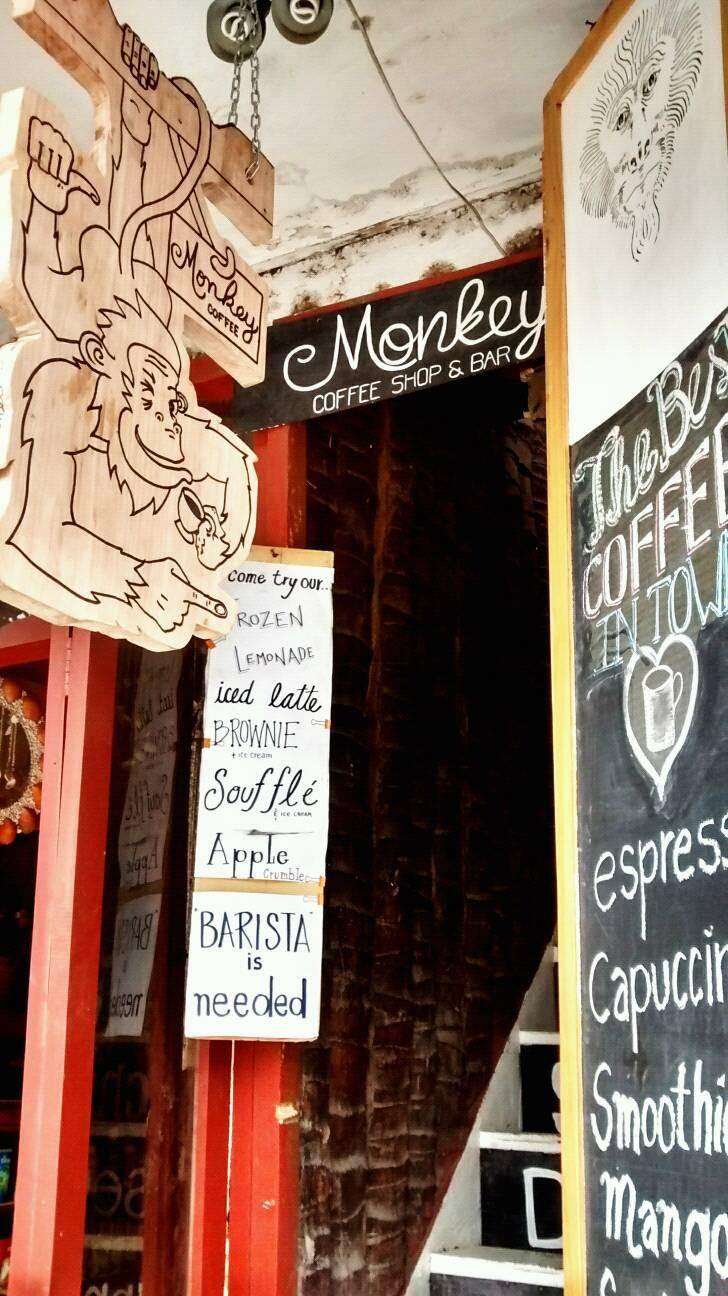 Monkey
COFFEE
Monkey
COFFEE SHOP & BAR
come try our...
ROZEN
LEMONADE
iced latte
BROWNIE
+ ice cream
Soufflé
& ICE CREAM
Apple
Crumble
"BARISTA"
is
needed
The Bes
COFFEE
IN TOW
espress
Capuccin
Smoothi
Mango
D